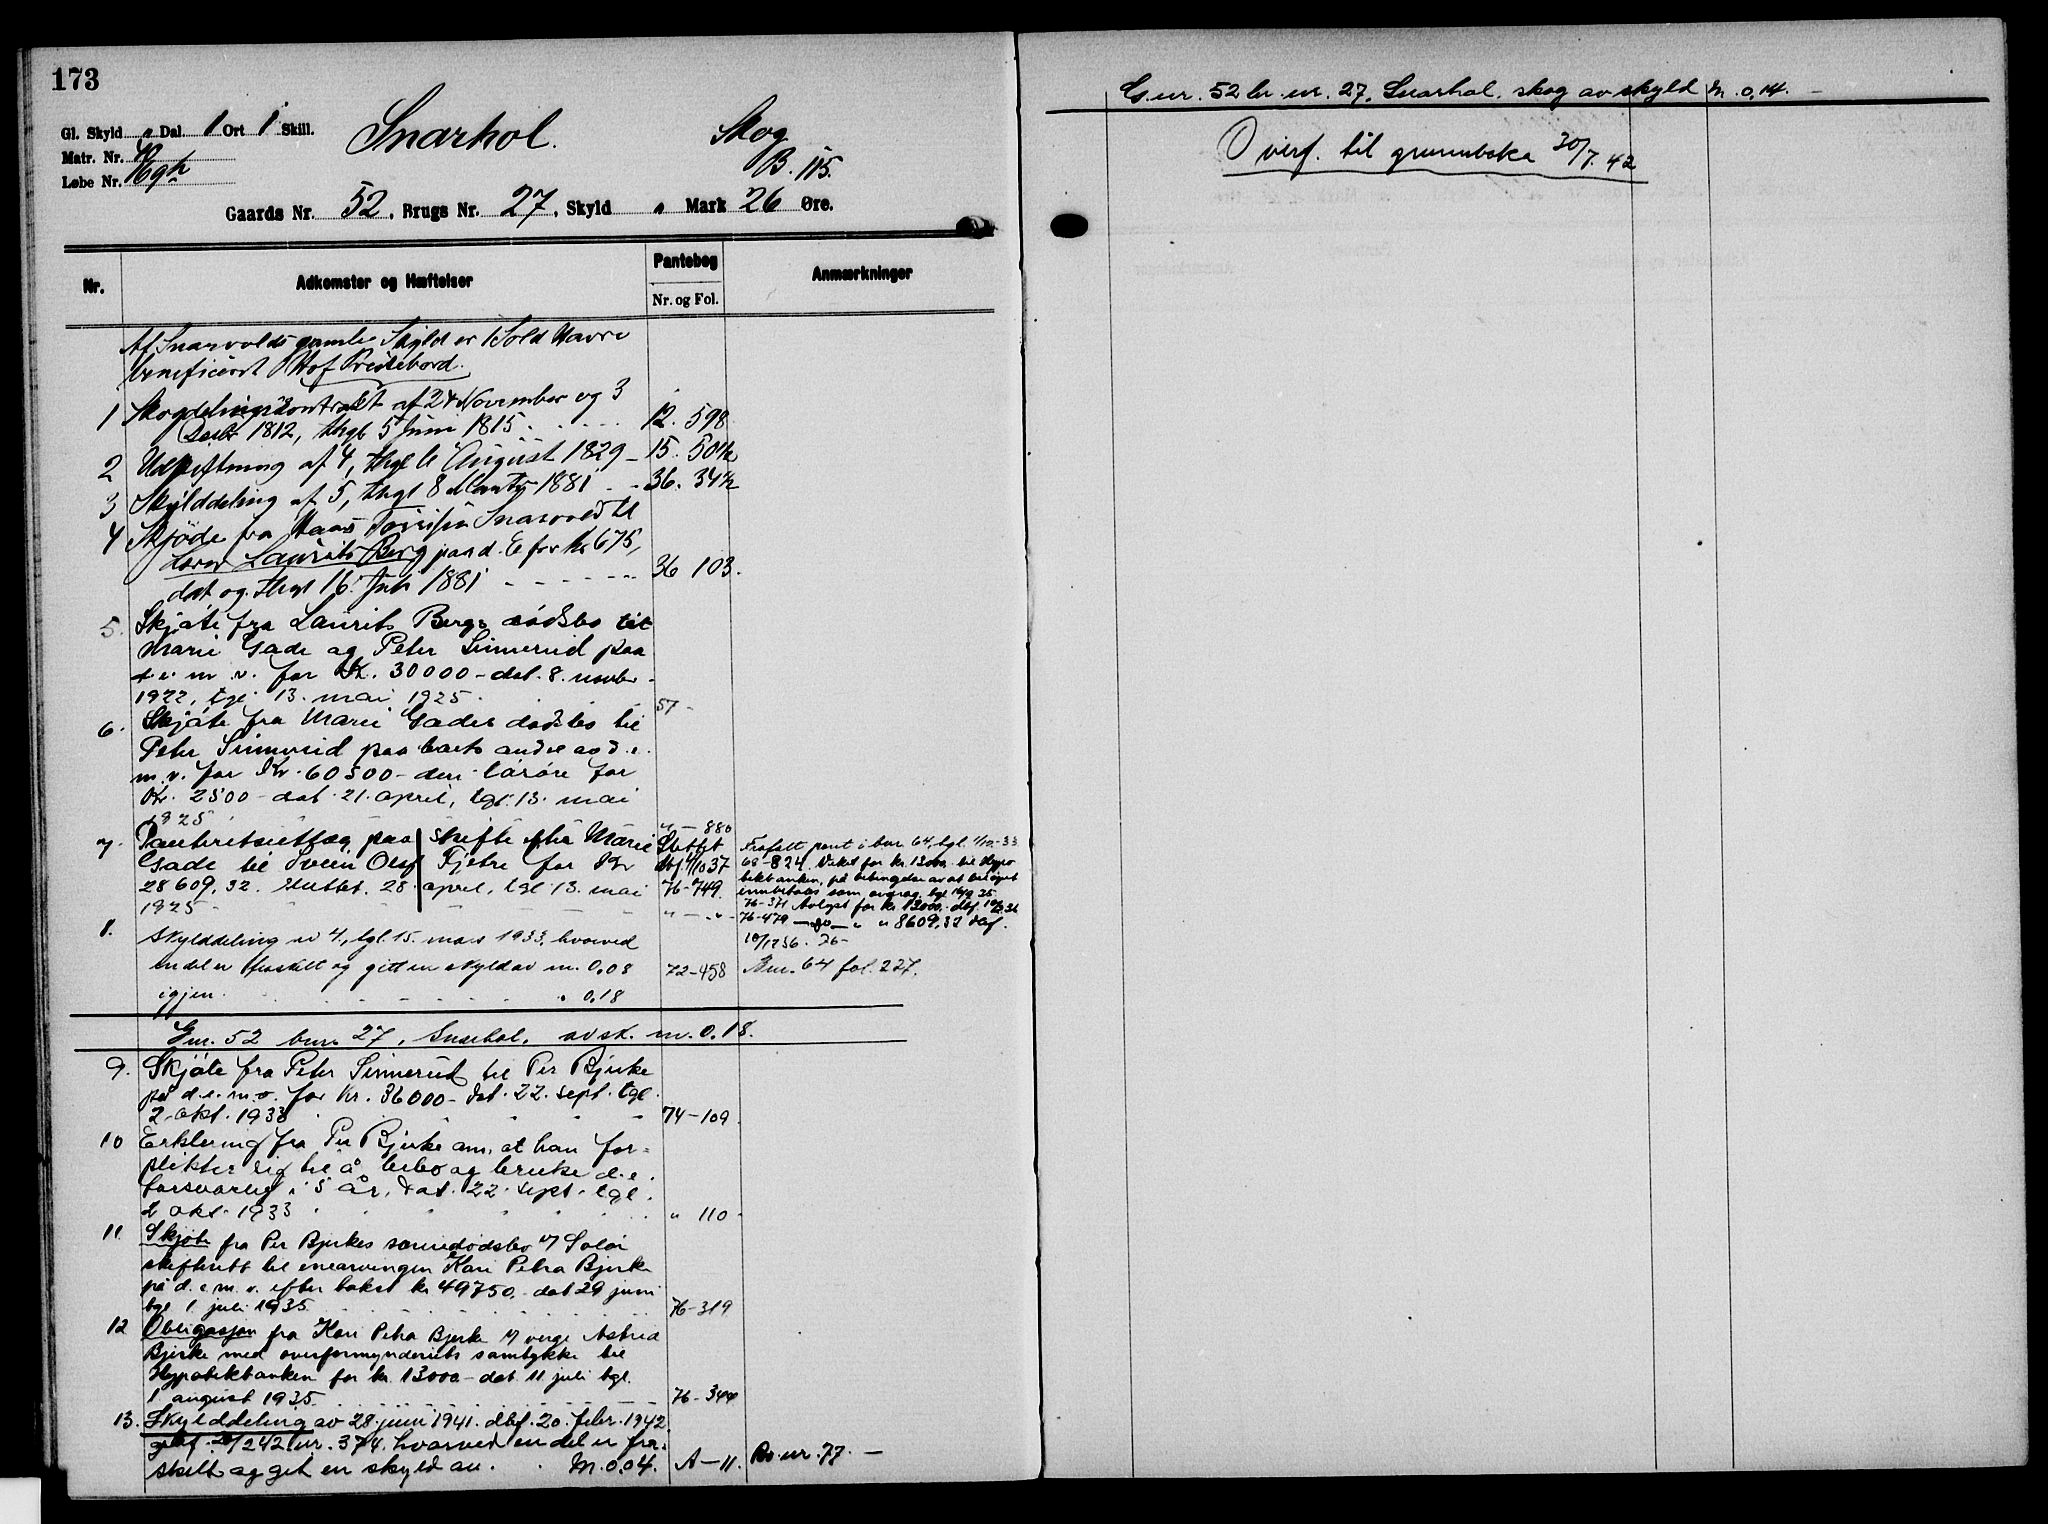 173
Gl. Skyld " Dal. 1 Ort 1 Skill.
Snarhol. Skog
Matr. Nr.
B. 115.
Løbe Nr.
Gaards Nr. 52, Brugs Nr. 27, Skyld " Mark 26 Øre.
Nr. Adkomster og Hæftelser Pantebog Nr. og Fol. Anmærkninger
Af Snarvolds gamle Skyld er 1 Sold Havre
beneficeret Hof Prestebord.
1 Skogdelingskontrakt af 24 November og 3
Decbr 1812, thgl 5 Juni 1815 12. 598
2 Udskiftning af 4, thgl 6 August 1829 - 15. 504
3 Skylddeling af 5, thgl 8 Marts 1881 - 36. 34
4 Skjøde fra Snarvold til
Laurits Berg paa d. E for Kr 675,
dat og thgl 16 Juli 1881 36 103.
5. Skjøte fra Laurits Bergs dødsbo til
Marie Gade og Peter Sinnerud paa
d. e. m. v. for Kr. 30000 - dat. 8. novbr.
1922, tgl. 13. mai 1925. 57 -
6. Skjøte fra Marie Gades dødsbo til
Peter Sinnerud paa hans andel av d. e.
m. v. for Kr. 60500 - derav løsøre for
Kr. 2500 - dat. 21. april, tgl. 13. mai
1925 " - 880
7. Panteretsutlæg paa skifte efter Marie
Gade til Svein Olaf Fjetre for Kr
28609,32. sluttet. 28 april, tgl 13. mai
1925
Slettet
dbf. 1/10 37
76-749.
" - " -
Frafalt pant i bnr. 64, tgl. 1/10-33
68-824. Veket for kr. 13000,- til Hypo
tekbanken, på betingelse av at beløpet
innbetales som avdrag, tgl
76-371 Avlyst for kr. 13000,- dbf.
76-479 - do - " " 8609,32 dbf.
10/12 36. 76-
8. Skylddeling av 4., tgl. 15. mars 1933, hvorved
en del er fraskilt og gitt en skyld av m. 0,08 72-458 Bnr. 64 fol. 227.
igjen. " 0,18
Gnr. 52 bnr. 27, Snarhol, av sk. m. 0,18.
9. Skjøte fra Peter Sinnerud til Per Bjerke
på d. e. m. v. for Kr. 36000 - dat. 22. sept. tgl.
2. okt. 1933 74-109.
10 Erklering fra Per Bjerke om, at han for-
plikter sig til å bebo og bruke d. e.
forsvarlig i 5 år, dat. 22. sept. tgl.
2 okt. 1933 " 110 -
11. Skjøte fra Per Bjerkes særiedødsbo v/ Solør
skifterett til enearvingen Kari Petra Bjerke
på d. e. m. v. efter takst kr 49750,- dat 29 juni
tgl 1. juli 1935 76-319
12 Obligasjon fra Kari Petra Bjerke v/ verge Astrid
Bjerke med overformynderiets samtykke til
Hypotekbanken for kr. 13000 - dat. 11 juli tgl.
1 august 1935. 76-344
13. Skylddeling av 28. juni 1941. dbf. 20. febr. 1942
nr. 374. hvorved en del er fra-
skilt og git en skyld av. M. 0,04. A-11. Br. nr. 77. -
G. nr. 52 br. nr. 27, Snarhol. skog av skyld M. 0,14. -
Overf. til grunnboka 30/7. 42